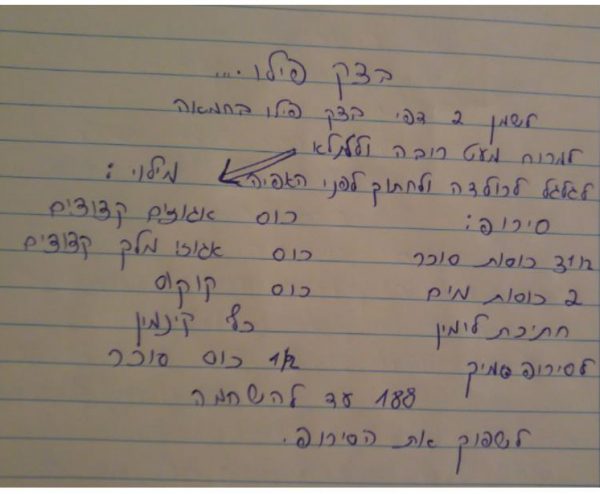 בצק פילו....
לשמן 2 דפי בצק פילו בחמאה
למרוח מעט ריבה וללמלא
לגלגל לרולדה ולחתוך לפני האפיה מילוי:
סירופ: כוס אגוזים קצוצים
כוסות סוכר כוס אגוזי מלך קצוצים
2 כוסות מים כוס קוקוס
חתיכת לימון כף קינמון
לסירופ סמיך 1/2 כוס סוכר
188 עד להשחמה
לשפוך את הסירופ.